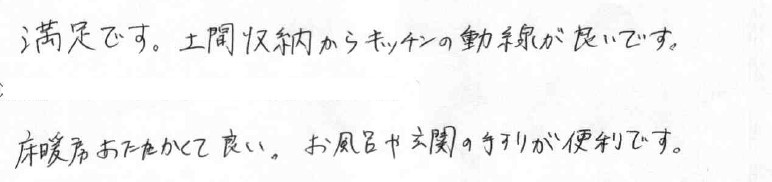 満足です。土間収納からキッチンの動線が良いです。
床暖房あたたかくて良い。お風呂や玄関の手すりが便利です。